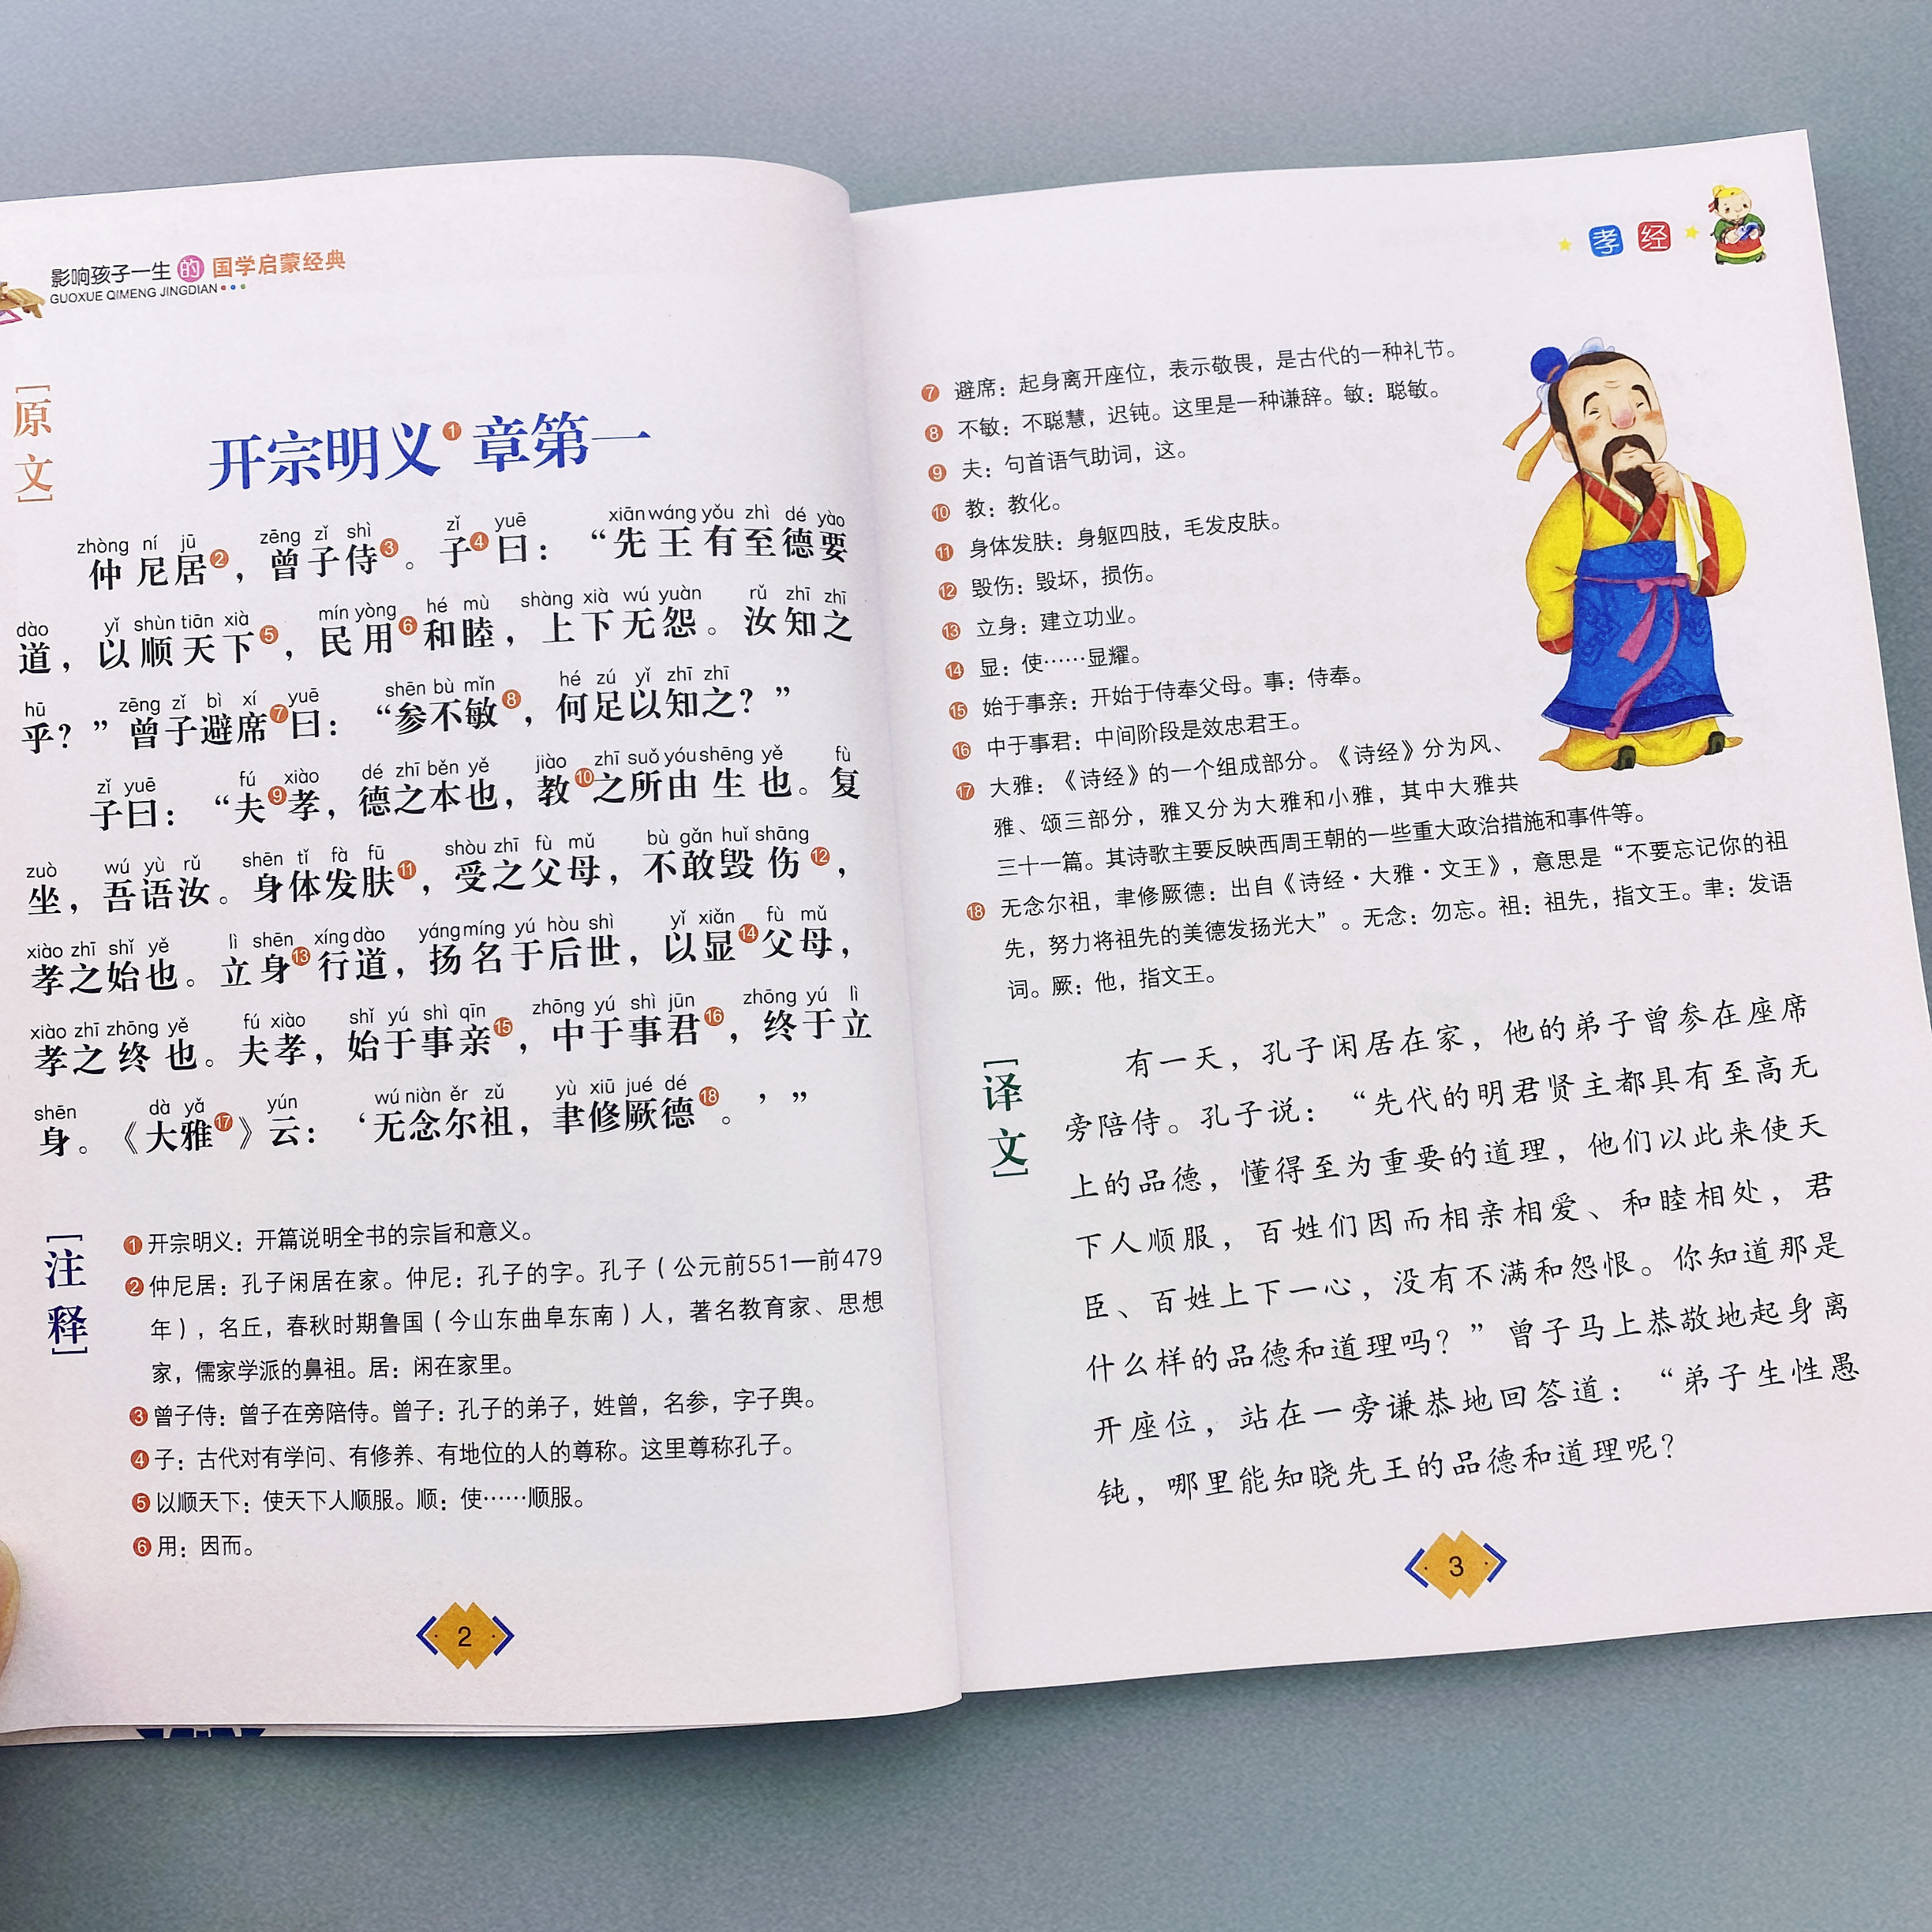 影响孩子一生的国学启蒙经典
GUOXUE QIMENG JINGDIAN
[原文]
开宗明义①章第一
zhòng ní jū zēng zǐ shì zǐ yuē xiān wáng yǒu zhì dé yào
仲尼居②，曾子侍③。子④曰：“先王有至德要
dào yǐ shùn tiān xià mín yòng hé mù shàng xià wú yuàn rǔ zhī zhī
道，以顺天下⑤，民用⑥和睦，上下无怨。汝知之
hū zēng zǐ bì xí yuē shēn bù mǐn hé zú yǐ zhī zhī
乎？”曾子避席⑦曰：“参不敏⑧，何足以知之？”
zǐ yuē fú xiào dé zhī běn yě jiào zhī suǒ yóu shēng yě fù
子曰：“夫⑨孝，德之本也，教⑩之所由生也。复
zuò wú yù rǔ shēn tǐ fà fū shòu zhī fù mǔ bù gǎn huǐ shāng
坐，吾语汝。身体发肤⑪，受之父母，不敢毁伤⑫，
xiào zhī shǐ yě lì shēn xíng dào yáng míng yú hòu shì yǐ xiǎn fù mǔ
孝之始也。立身⑬行道，扬名于后世，以显⑭父母，
xiào zhī zhōng yě fú xiào shǐ yú shì qīn zhōng yú shì jūn zhōng yú lì
孝之终也。夫孝，始于事亲⑮，中于事君⑯，终于立
shēn dà yǎ yún wú niàn ěr zǔ yù xiū jué dé
身。《大雅⑰》云：‘无念尔祖，聿修厥德⑱。’”
[注释]
①开宗明义：开篇说明全书的宗旨和意义。
②仲尼居：孔子闲居在家。仲尼：孔子的字。孔子（公元前551—前479
年），名丘，春秋时期鲁国（今山东曲阜东南）人，著名教育家、思想
家，儒家学派的鼻祖。居：闲在家里。
③曾子侍：曾子在旁陪侍。曾子：孔子的弟子，姓曾，名参，字子舆。
④子：古代对有学问、有修养、有地位的人的尊称。这里尊称孔子。
⑤以顺天下：使天下人顺服。顺：使……顺服。
⑥用：因而。
2
孝经
⑦避席：起身离开座位，表示敬畏，是古代的一种礼节。
⑧不敏：不聪慧，迟钝。这里是一种谦辞。敏：聪敏。
⑨夫：句首语气助词，这。
⑩教：教化。
⑪身体发肤：身躯四肢，毛发皮肤。
⑫毁伤：毁坏，损伤。
⑬立身：建立功业。
⑭显：使……显耀。
⑮始于事亲：开始于侍奉父母。事：侍奉。
⑯中于事君：中间阶段是效忠君王。
⑰大雅：《诗经》的一个组成部分。《诗经》分为风、
雅、颂三部分，雅又分为大雅和小雅，其中大雅共
三十一篇。其诗歌主要反映西周王朝的一些重大政治措施和事件等。
⑱无念尔祖，聿修厥德：出自《诗经·大雅·文王》，意思是“不要忘记你的祖
先，努力将祖先的美德发扬光大”。无念：勿忘。祖：祖先，指文王。聿：发语
词。厥：他，指文王。
[译文]
有一天，孔子闲居在家，他的弟子曾参在座席
旁陪侍。孔子说：“先代的明君贤主都具有至高无
上的品德，懂得至为重要的道理，他们以此来使天
下人顺服，百姓们因而相亲相爱、和睦相处，君
臣、百姓上下一心，没有不满和怨恨。你知道那是
什么样的品德和道理吗？”曾子马上恭敬地起身离
开座位，站在一旁谦恭地回答道：“弟子生性愚
钝，哪里能知晓先王的品德和道理呢？
3